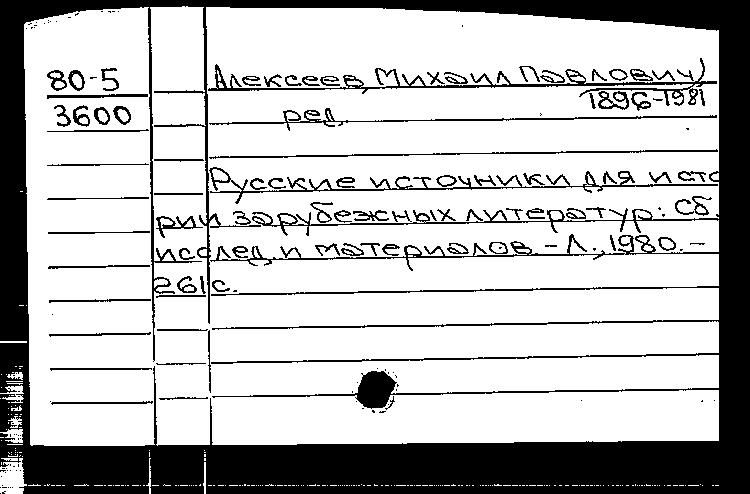 80-5 Алексеев, Михаил Павлович,
1896-1981
3600 ред.
Русские источники для исто
рии зарубежных литератур: Сб.
исслед. и материалов. - Л., 1980. -
261 с.